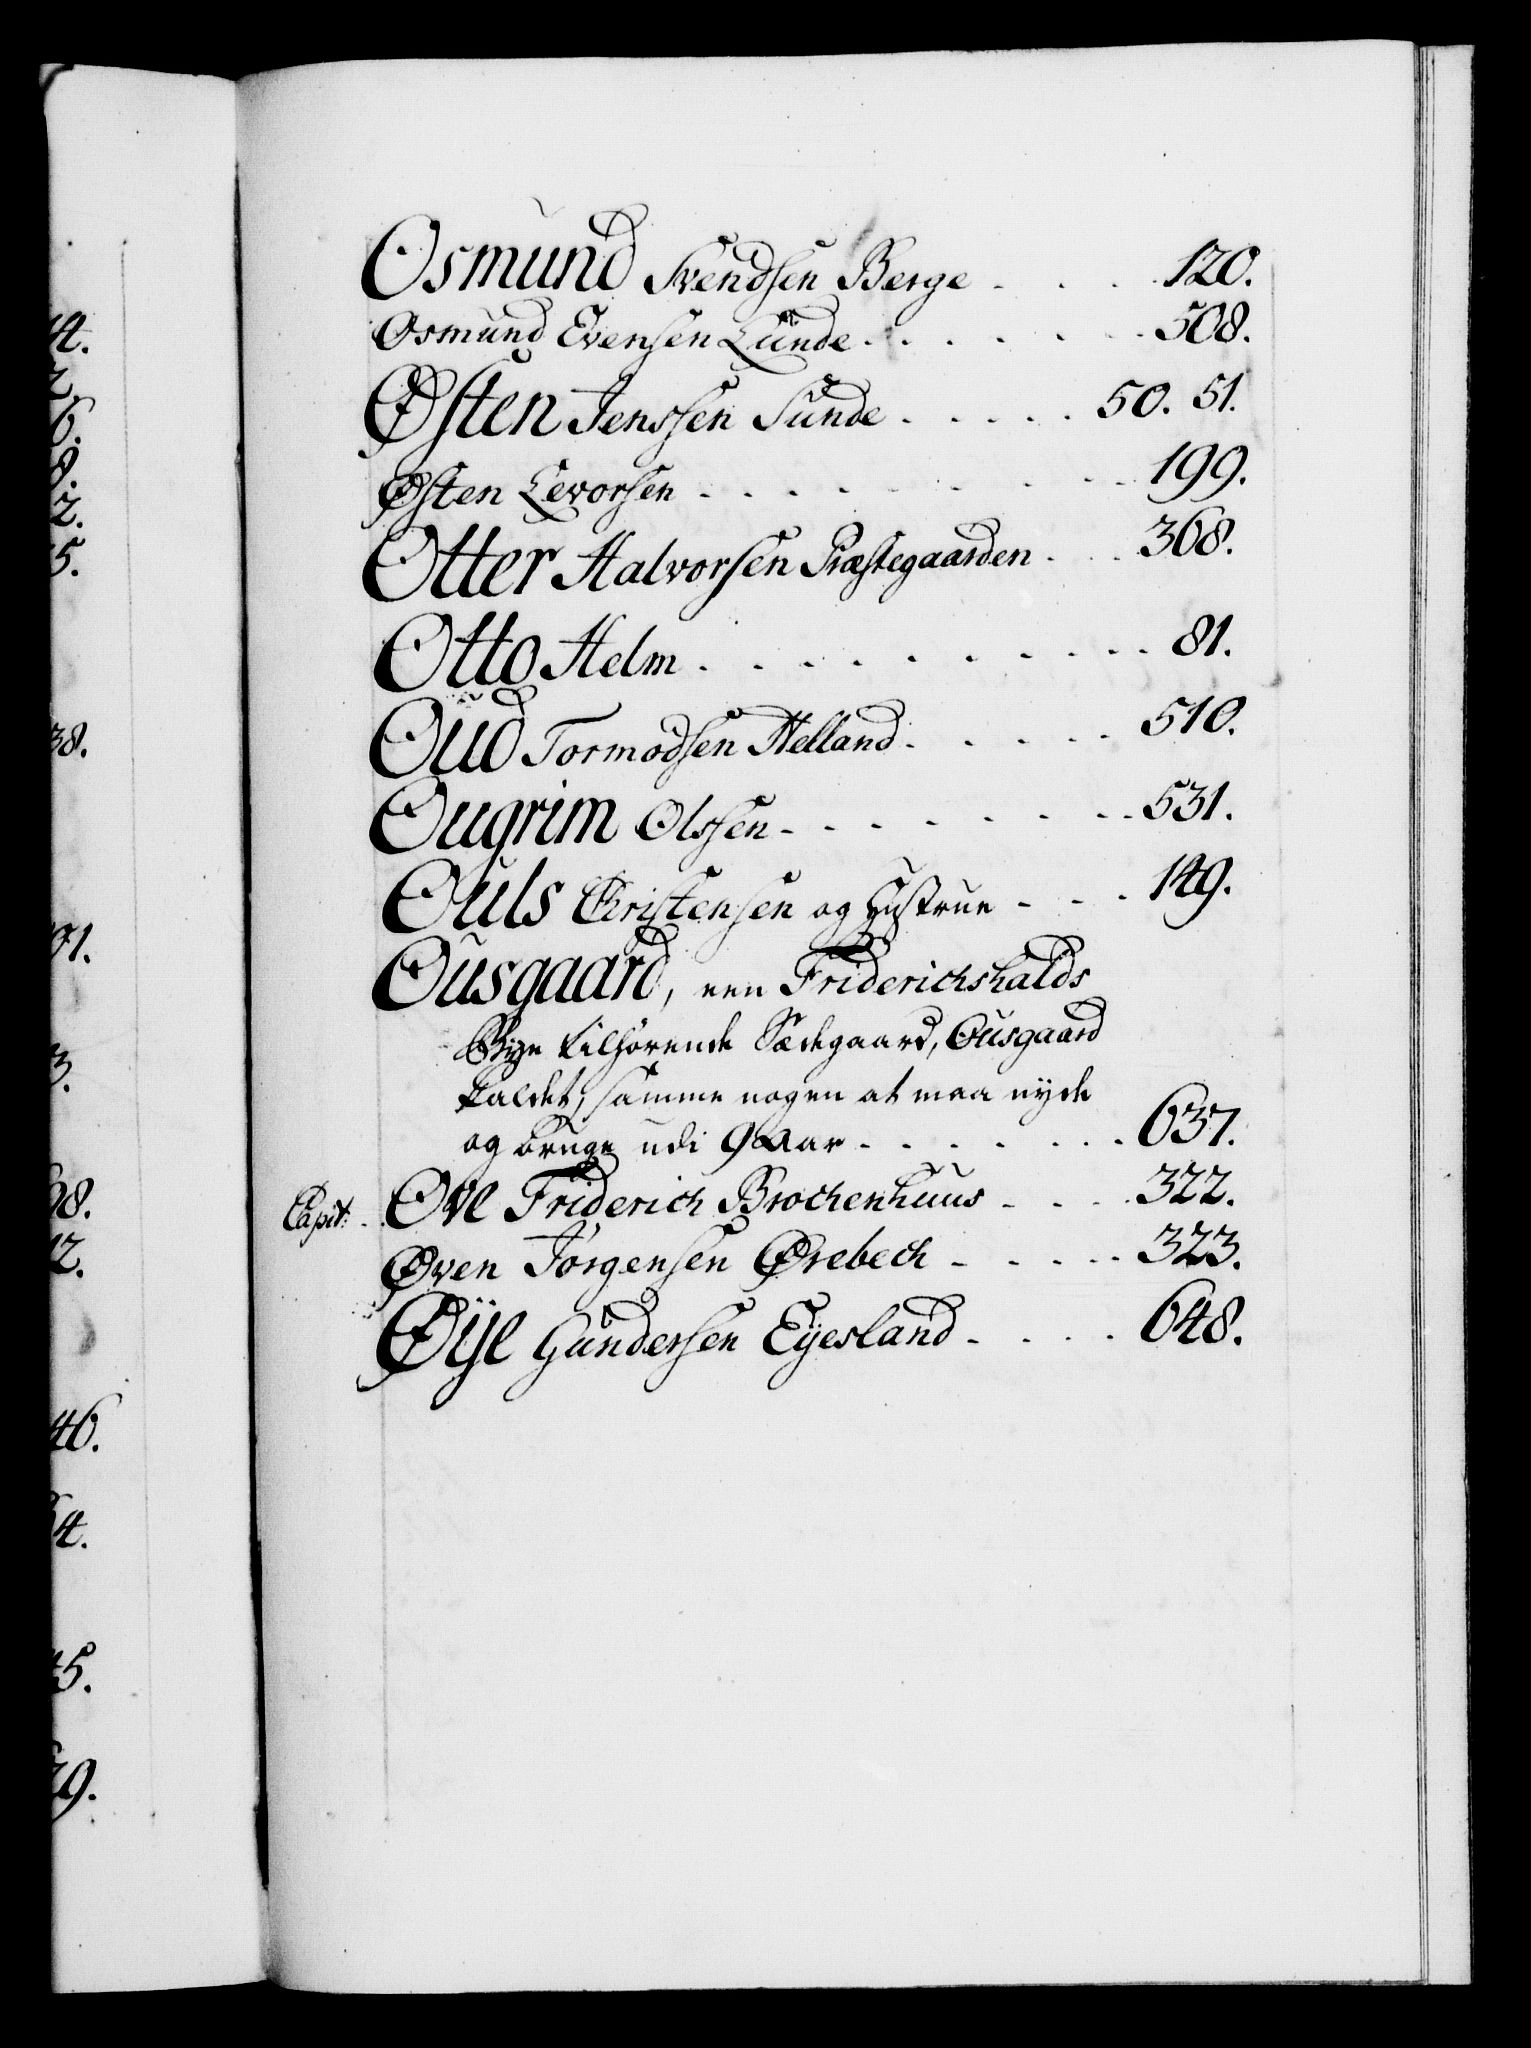 Osmund Svendsen Berge - . . . 120.
Osmund Evensen Lunde . . . . . . . 508.
Østen Jenssen Sunde . . . . . 50. 51.
Østen Levorsen - . . . . . . . . 199.
Otter Halvorsen Præstegaarden . . . 368.
Otto Helm . . . . . . . . . . 81.
Oud Tormodsen Helland . . . . . 510.
Ougrim Olssen - . . . . . . . 531.
Ouls Christensen og Hustrue - . . 149.
Ousgaard, een Friderichshalds
Bye tilhørende Sædegaard, Ousgaard
kaldet, samme nogen at maa nyde
og bruge udi 9 Aar . . . . . . . 637.
Capit: . . Ove Friderich Brochenhuus - . . . 322.
Øven Jørgensen Ørebech - . . . . 323.
Øije Gundersen Eijesland . . . . 648.
4.
6.
8.
2.
5.
38.
91.
3.
68.
12.
46.
54.
45.
79.